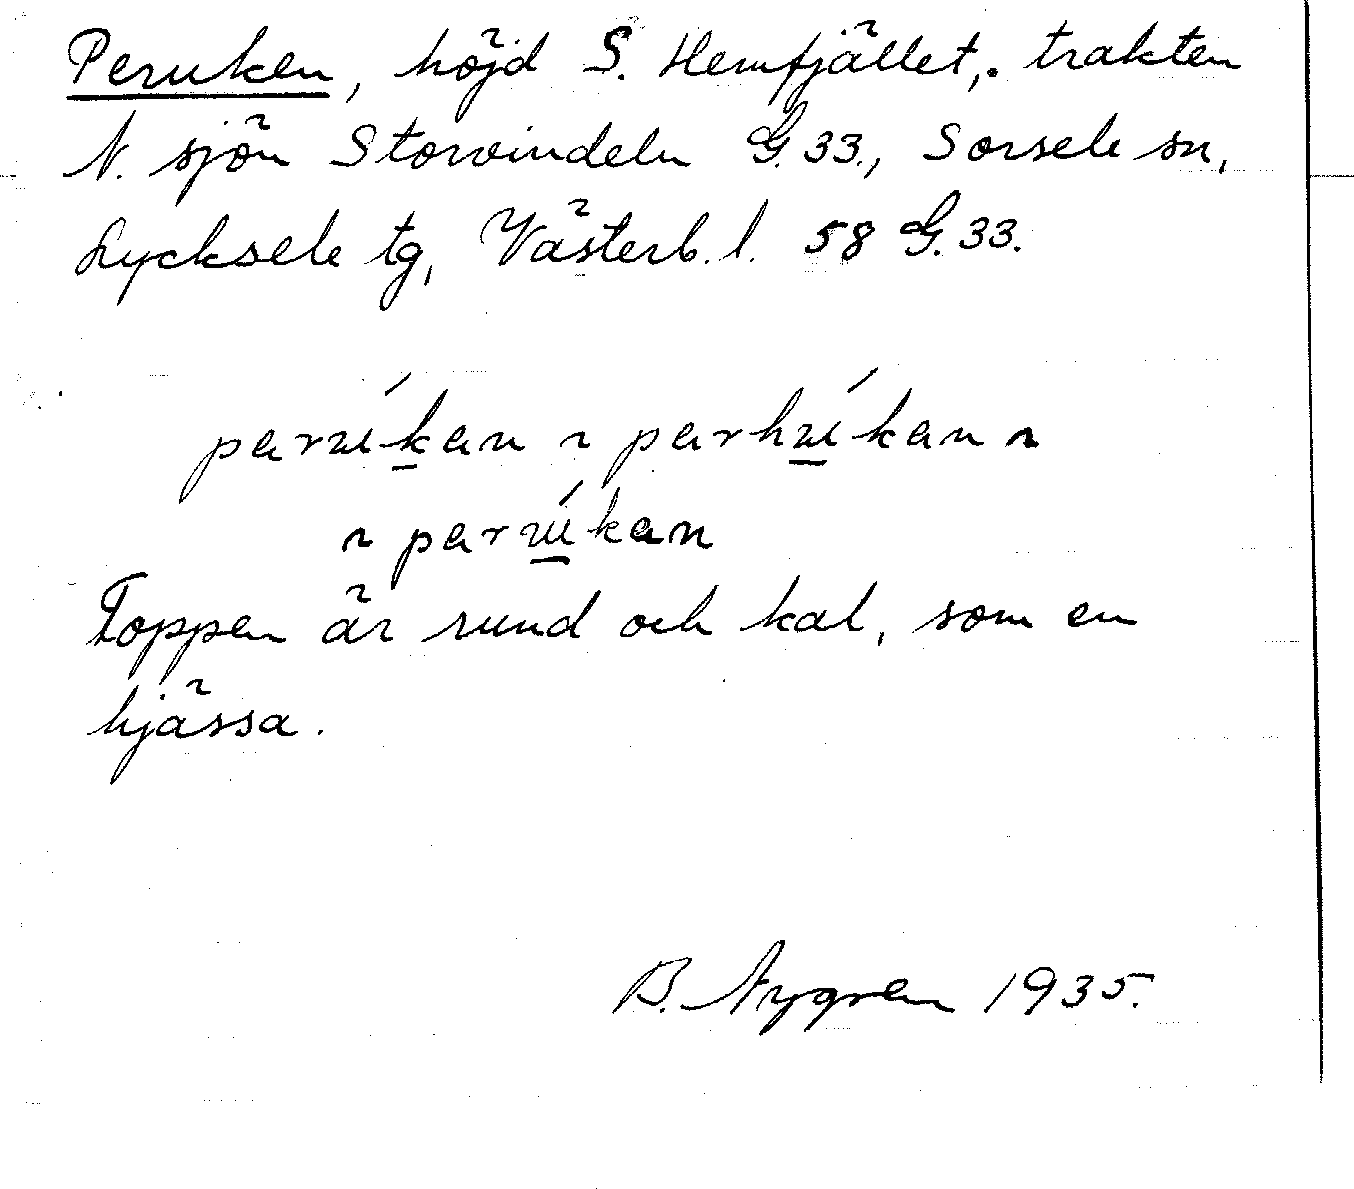 Peruken, höjd S. Hemfjället, trakten
N. sjön Storvindeln G. 33., Sorsele sn,
Lycksele tg, Västerb. l. 58 G. 33.
Toppen är rund och kal, som en
hjässa.
B. Nygren 1935.